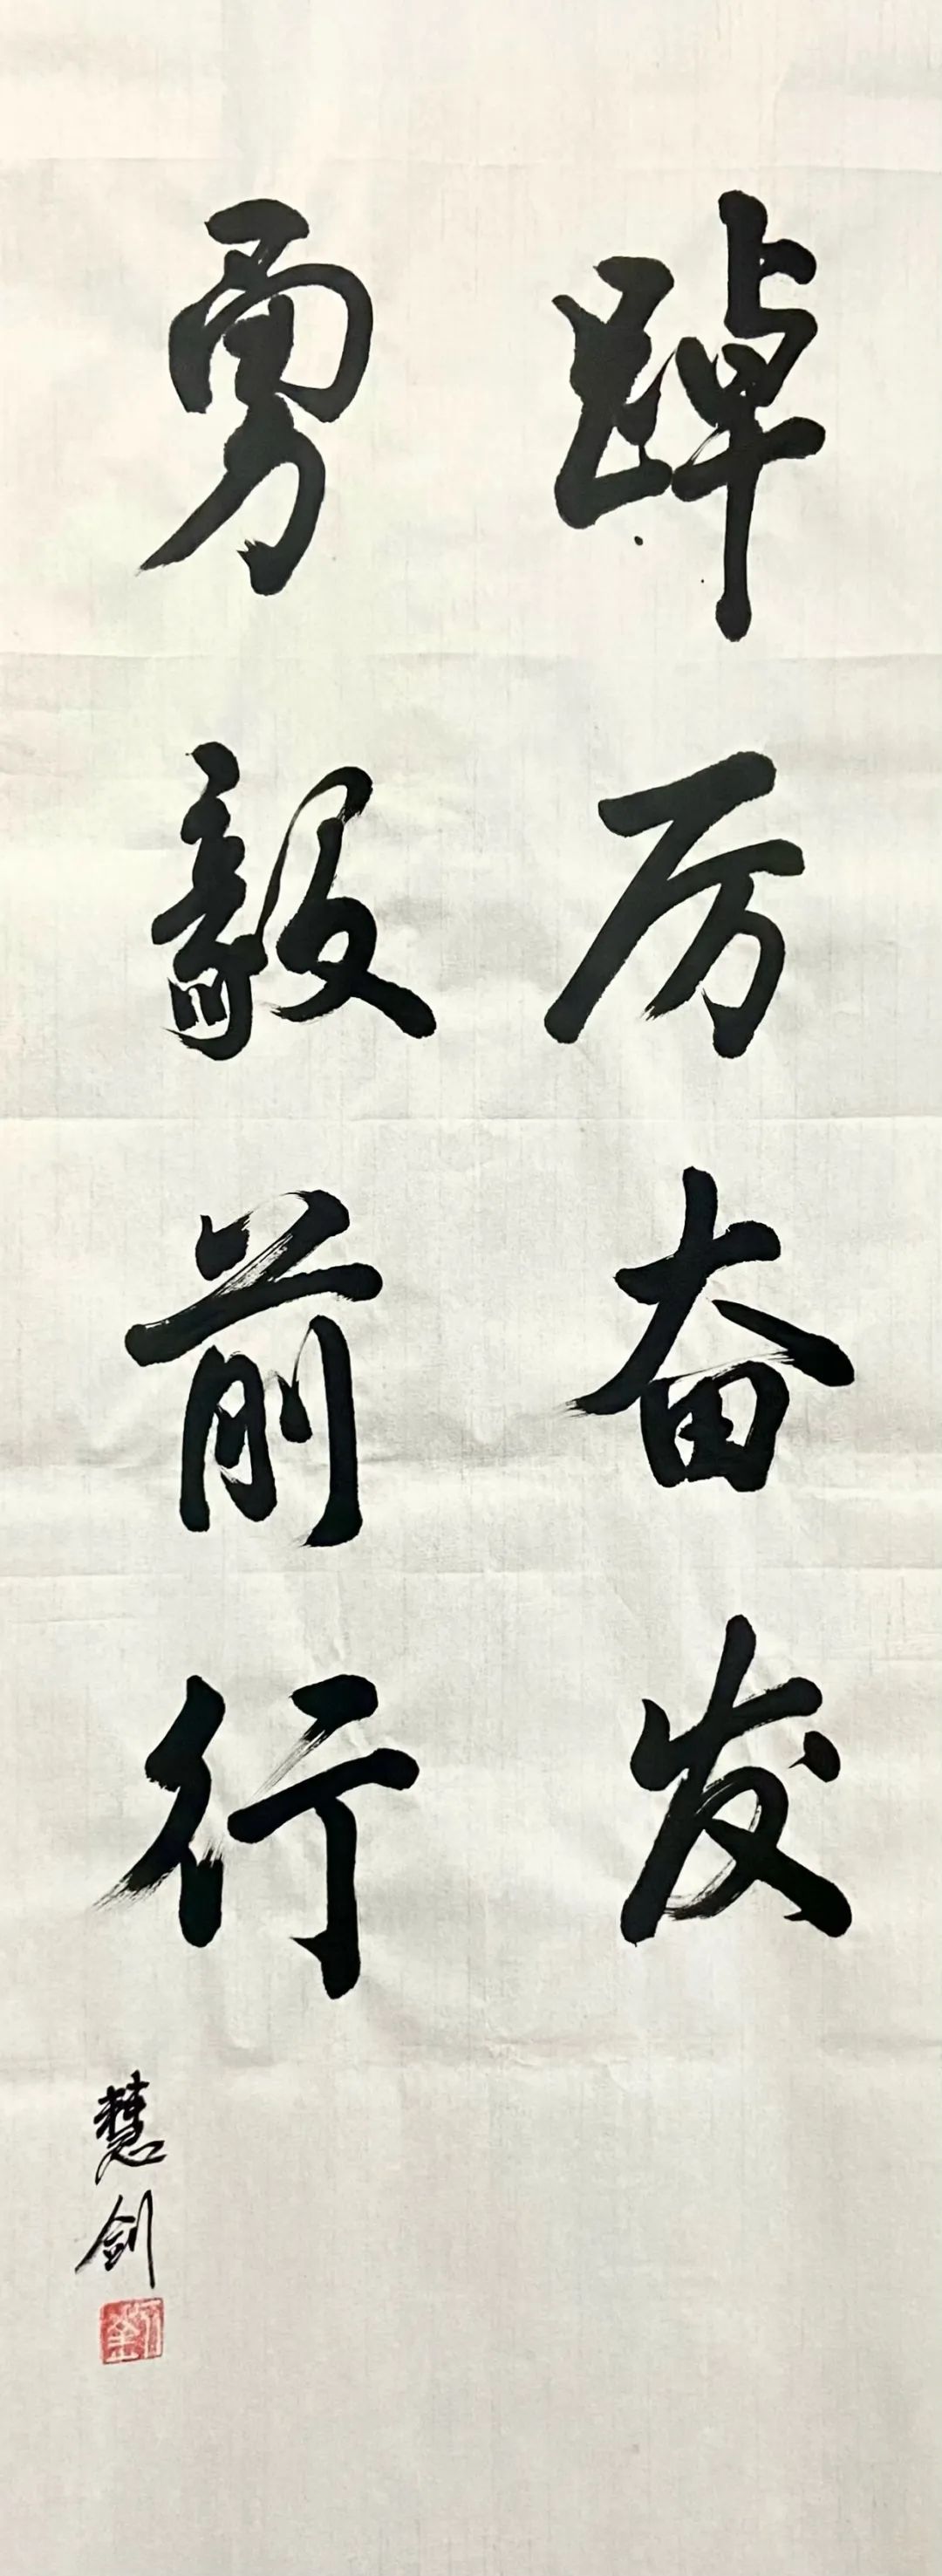 踔厉奋发
勇毅前行
慧剑
刘